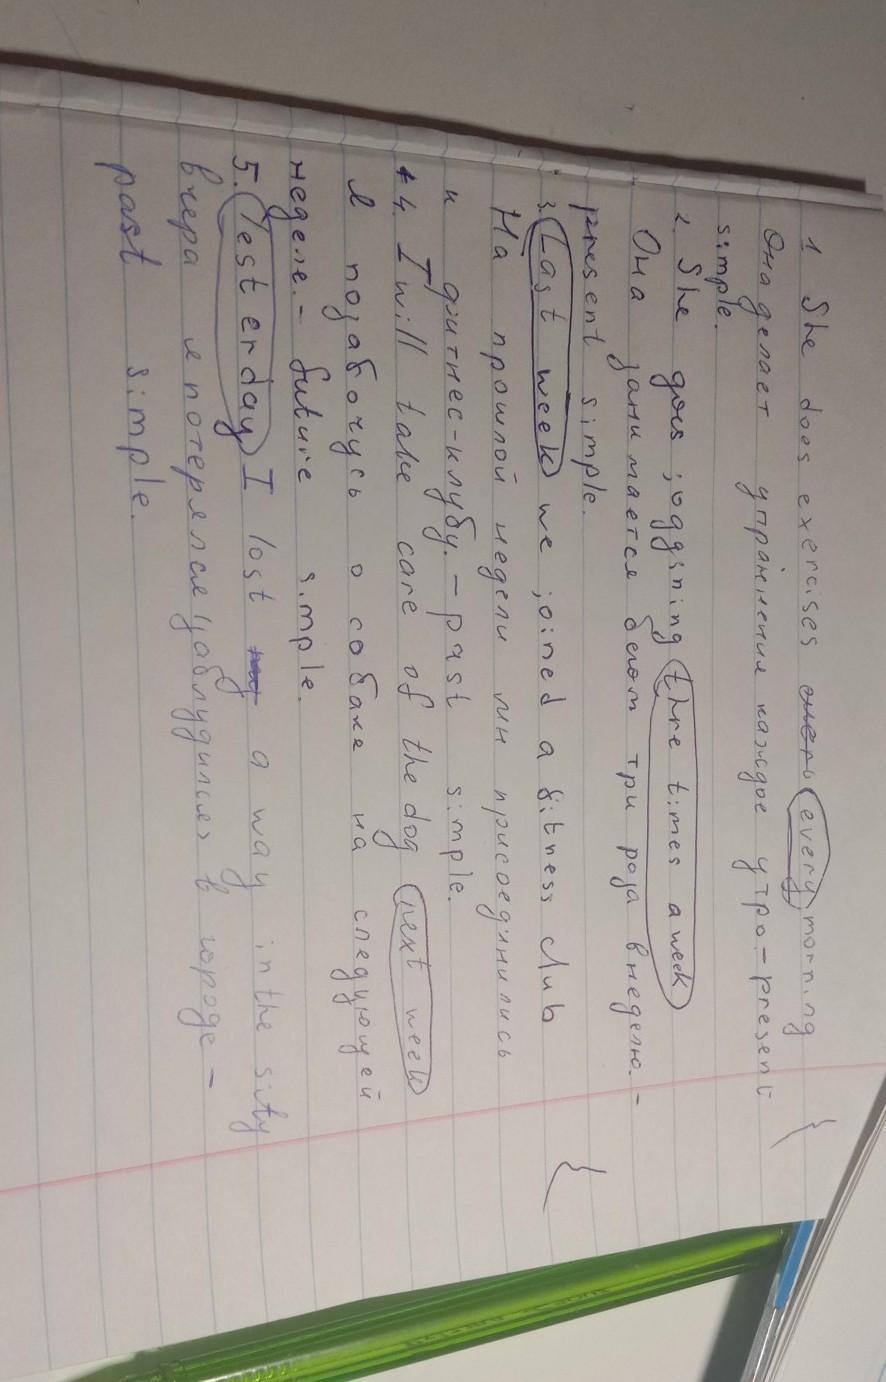 1. She does exercises every morning
Она делает упражнения каждое утро - present
simple.
2. She goes joggining thre times a week
Она занимается бегом три раза в неделю. -
present simple.
3. Last week we joined a fitness club
На прошлой недели мы присоединились
к фитнес-клубу. - past simple.
4. I will take care of the dog next week
Я позабочусь о собаке на следующей
неделе. - future simple.
5. Yesterday I lost a way in the sity
Вчера я потерялся (заблудился) в городе -
past simple.